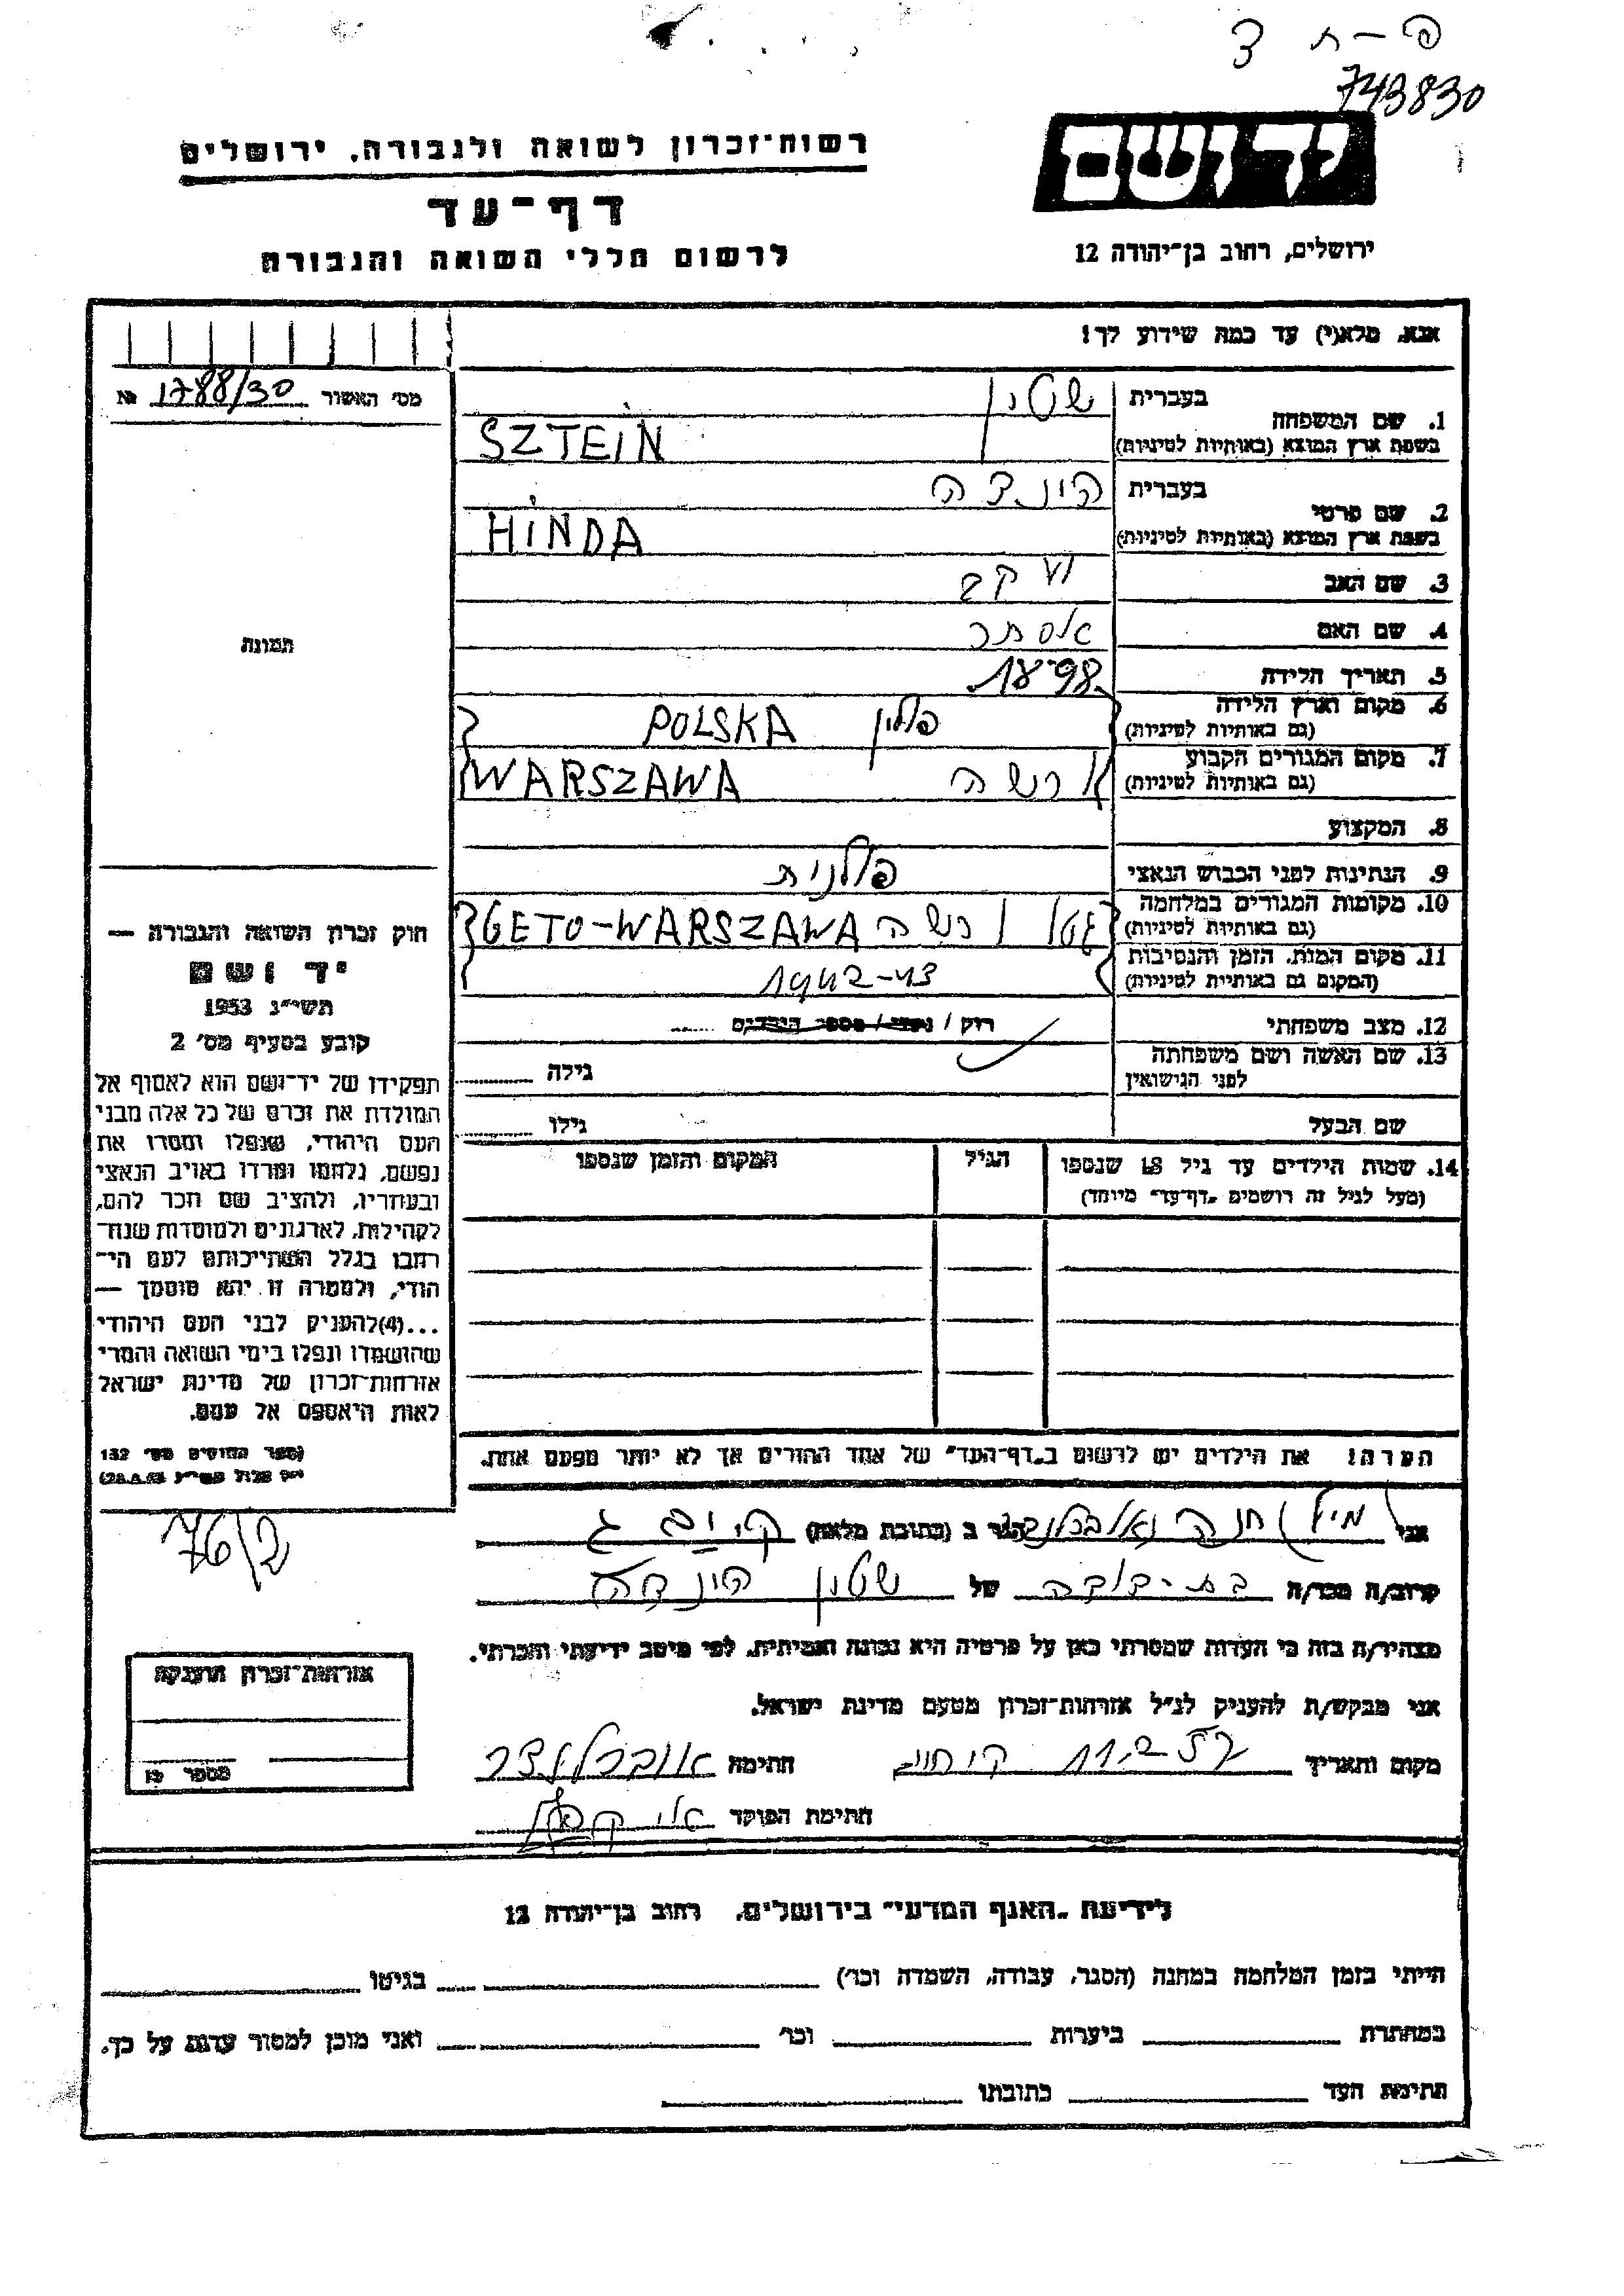 פ-ת ד
743830
יד ושם
ירושלים, רחוב בן־יהודה 12
רשות־זכרון לשואה ולגבורה, ירושלים
דף־עד
לרשום חללי השואה והגבורה
אנא, מלא(י) עד כמה שידוע לך!
מס׳ האשור 1788/30 №
1. שם המשפחה
בעברית שטין
בשפת ארץ המוצא (באותיות לטיניות) SZTEIN
2. שם פרטי
בעברית הינדה
בשפת ארץ המוצא (באותיות לטיניות) HINDA
3. שם האב יעקב
4. שם האם אסתר
5. תאריך הלידה 1898.
6. מקום וארץ הלידה פולין POLSKA
(גם באותיות לטיניות)
7. מקום המגורים הקבוע ורשה WARSZAWA
(גם באותיות לטיניות)
8. המקצוע
9. הנתינות לפני הכבוש הנאצי פולנית
10. מקומות המגורים במלחמה גטו ורשה GETO-WARSZAWA
(גם באותיות לטיניות)
11. מקום המות, הזמן והנסיבות 1942-43
(המקום גם באותיות לטיניות)
12. מצב משפחתי רוק / נשוי / מספר הילדים
13. שם האשה ושם משפחתה
לפני הנישואין גילה
שם הבעל גילו
14. שמות הילדים עד גיל 18 שנספו הגיל המקום והזמן שנספו
(מעל לגיל זה רושמים „דף־עד״ מיוחד)
הערה: את הילדים יש לרשום ב„דף־העד״ של אחד ההורים אך לא יותר מפעם אחת.
תמונה
חוק זכרון השואה והגבורה —
יד ושם
תשי״ג 1953
קובע בסעיף מס׳ 2
תפקידו של יד־ושם הוא לאסוף אל
המולדת את זכרם של כל אלה מבני
העם היהודי, שנפלו ומסרו את
נפשם, נלחמו ומרדו באויב הנאצי
ובעוזריו, ולהציב שם וזכר להם,
לקהילות, לארגונים ולמוסדות שנח־
רבו בגלל השתייכותם לעם הי־
הודי, ולמטרה זו יהא מוסמך —
...(4)להעניק לבני העם היהודי
שהושמדו ונפלו בימי השואה והמרי
אזרחות־זכרון של מדינת ישראל
לאות היאספם אל עמם.
(ספר החוקים מס׳ 132
76/2
אני חנה הגר ב (כתובת מלאה)
קרוב/ה מכר/ה בת-דודה של שטין הינדה
מצהיר/ה בזה כי העדות שמסרתי כאן על פרטיה היא נכונה ואמיתית, לפי מיטב ידיעתי והכרתי.
אני מבקש/ת להעניק לנ״ל אזרחות־זכרון מטעם מדינת ישראל.
מקום ותאריך 11.2.57 חתימה
חתימת הפוקד
אזרחות־זכרון הוענקה
מספר
לידיעת „האגף המדעי״ בירושלים, רחוב בן־יהודה 12
הייתי בזמן המלחמה במחנה (הסגר, עבודה, השמדה וכו׳) בגיטו
במחתרת ביערות וכו׳ ואני מוכן למסור עדות על כך.
חתימת העד כתובתו